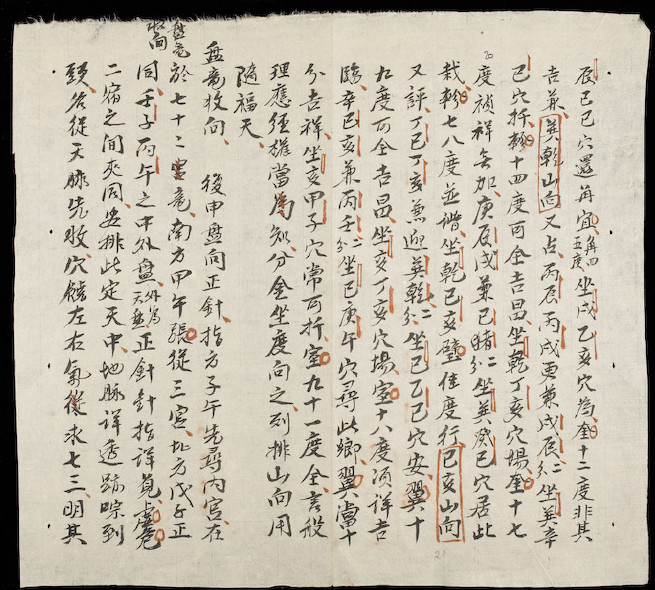 辰己巳穴還再宜角四五度坐戌乙亥穴為奎十二度非其
吉兼巽乾山向又占丙辰丙戌更兼戊辰分二坐巽辛
巳穴扦軫十四度可全吉昌坐乾丁亥穴場奎十七
度禎祥無加庚辰戌兼已睹分二坐巽癸巳穴居此
栽軫七八度並諧坐乾己亥璧佳度行巳亥山向
又評丁巳丁亥兼迎巽乾分二坐巳乙巳穴安翼十
九度可全吉昌坐亥丁亥穴場室十八度項詳吉
臨辛巳亥兼丙壬分二坐巳庚午穴尋此鄉翼當十
分吉祥坐亥甲子穴常可扦室九十一度全言般
理應経雄當為知分金坐度向之列排山向用
隨福天
盤竜收向 後申盤向正針指方子午先尋內宮在
盤竜收向
於七十二宮竜南方甲午張從三宮北方戊子正
同壬子丙午之中外盤外為天盤正針針指詳覓虛危
二宿之間夾同安排此定天中地脉詳透跡踪到
頭名從天脉先收穴饒左右氣從求七三明其